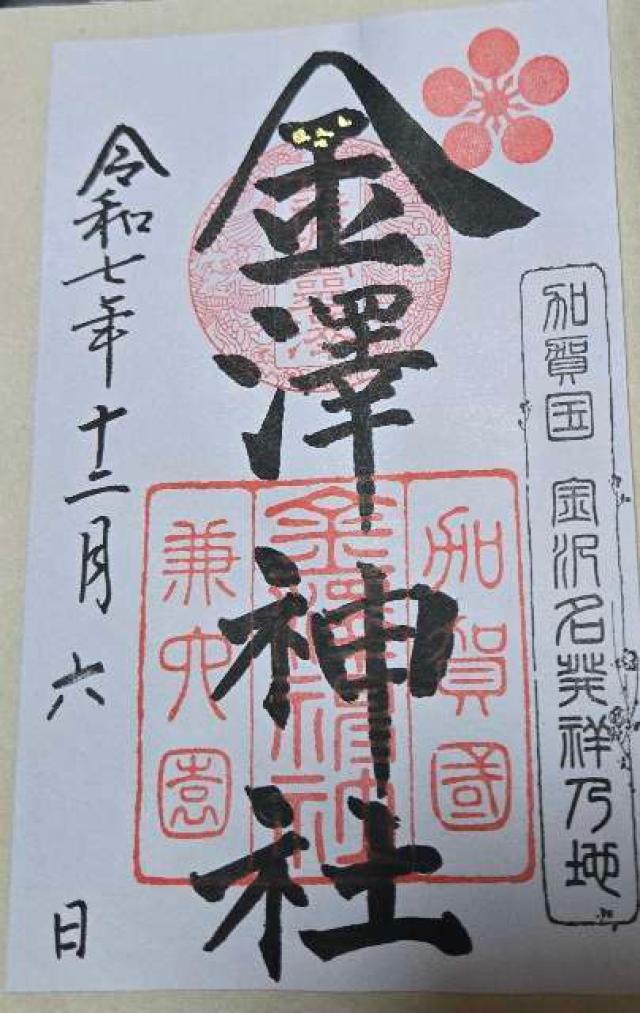 加賀国 金沢名発祥乃地
金澤神社
加賀國
金澤神社
兼六園
令和七年十二月六日